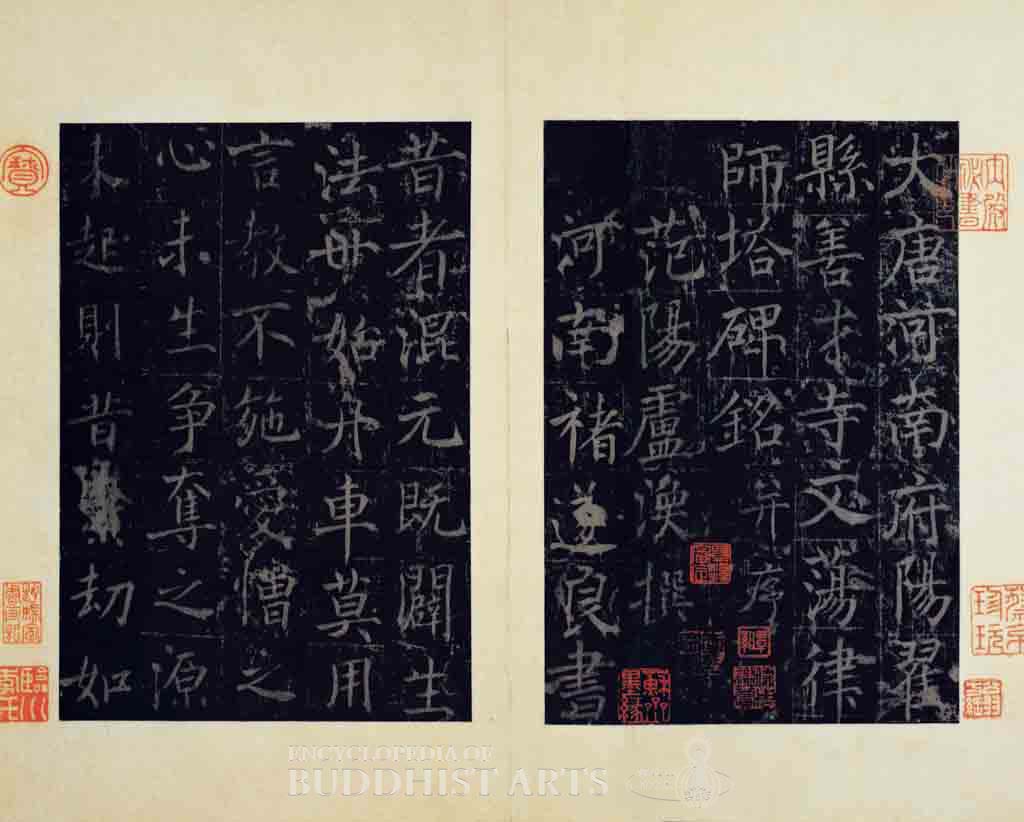 大唐河南府陽翟
縣善才寺文蕩律
師塔碑銘并序
范陽盧渙撰
河南褚遂良書
昔者混元既闢生
法毋始舟車莫用
言教不施愛憎之
心未生争奪之源
未起則昔劫如
ENCYCLOPEDIA OF
BUDDHIST ARTS